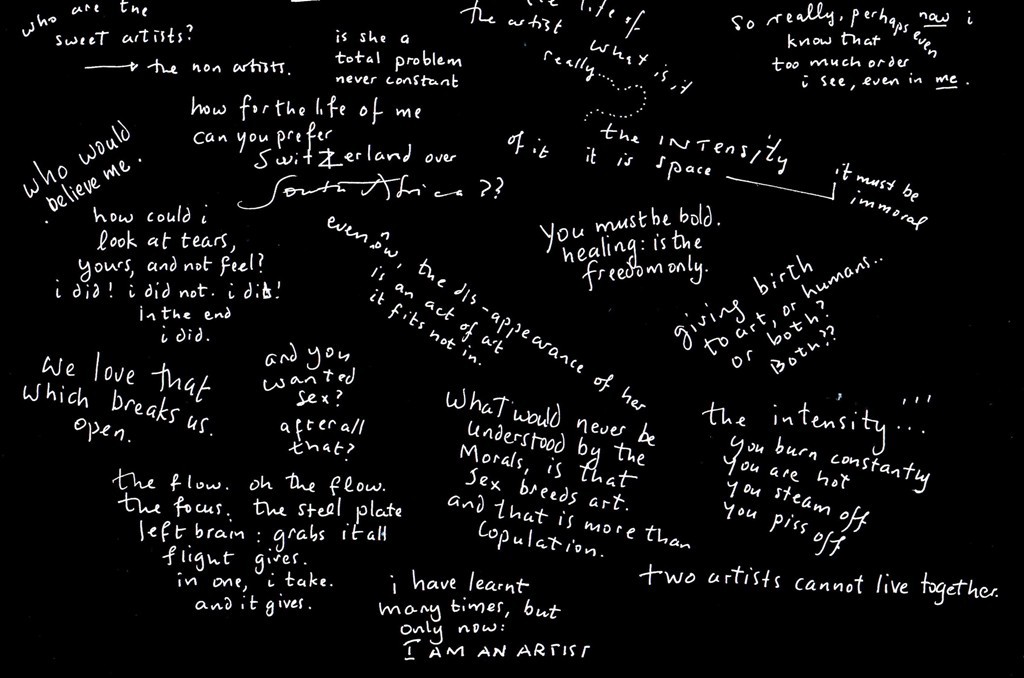 who are the
sweet artists?
→ the non artists.
is she a
total problem
never constant
the life of
the artist
what is it
really....
so really, perhaps now i
even
know that
too much order
i see, even in me.
how for the life of me
can you prefer
Switzerland over
South Africa??
of it it is
the INTENSITY
space
it must be
immoral
who would
believe me.
how could i
look at tears,
yours, and not feel?
i did! i did not. i did!
in the end
i did.
even now, the dis-appearance of her
is an act of art
it fits not in.
You must be bold.
healing: is the
freedom only.
giving birth
to art, or humans..
or both?
Both??
we love that
which breaks us.
open.
and you
wanted
sex?
after all
that?
What would never be
understood by the
Morals, is that
Sex breeds art.
and that is more than
copulation.
the intensity...
you burn constantly
you are hot
you steam off
you piss off
the flow. oh the flow.
the focus. the steel plate
left brain: grabs it all
flight gives.
in one, i take.
and it gives.
i have learnt
many times, but
only now:
I AM AN ARTIST
two artists cannot live together.